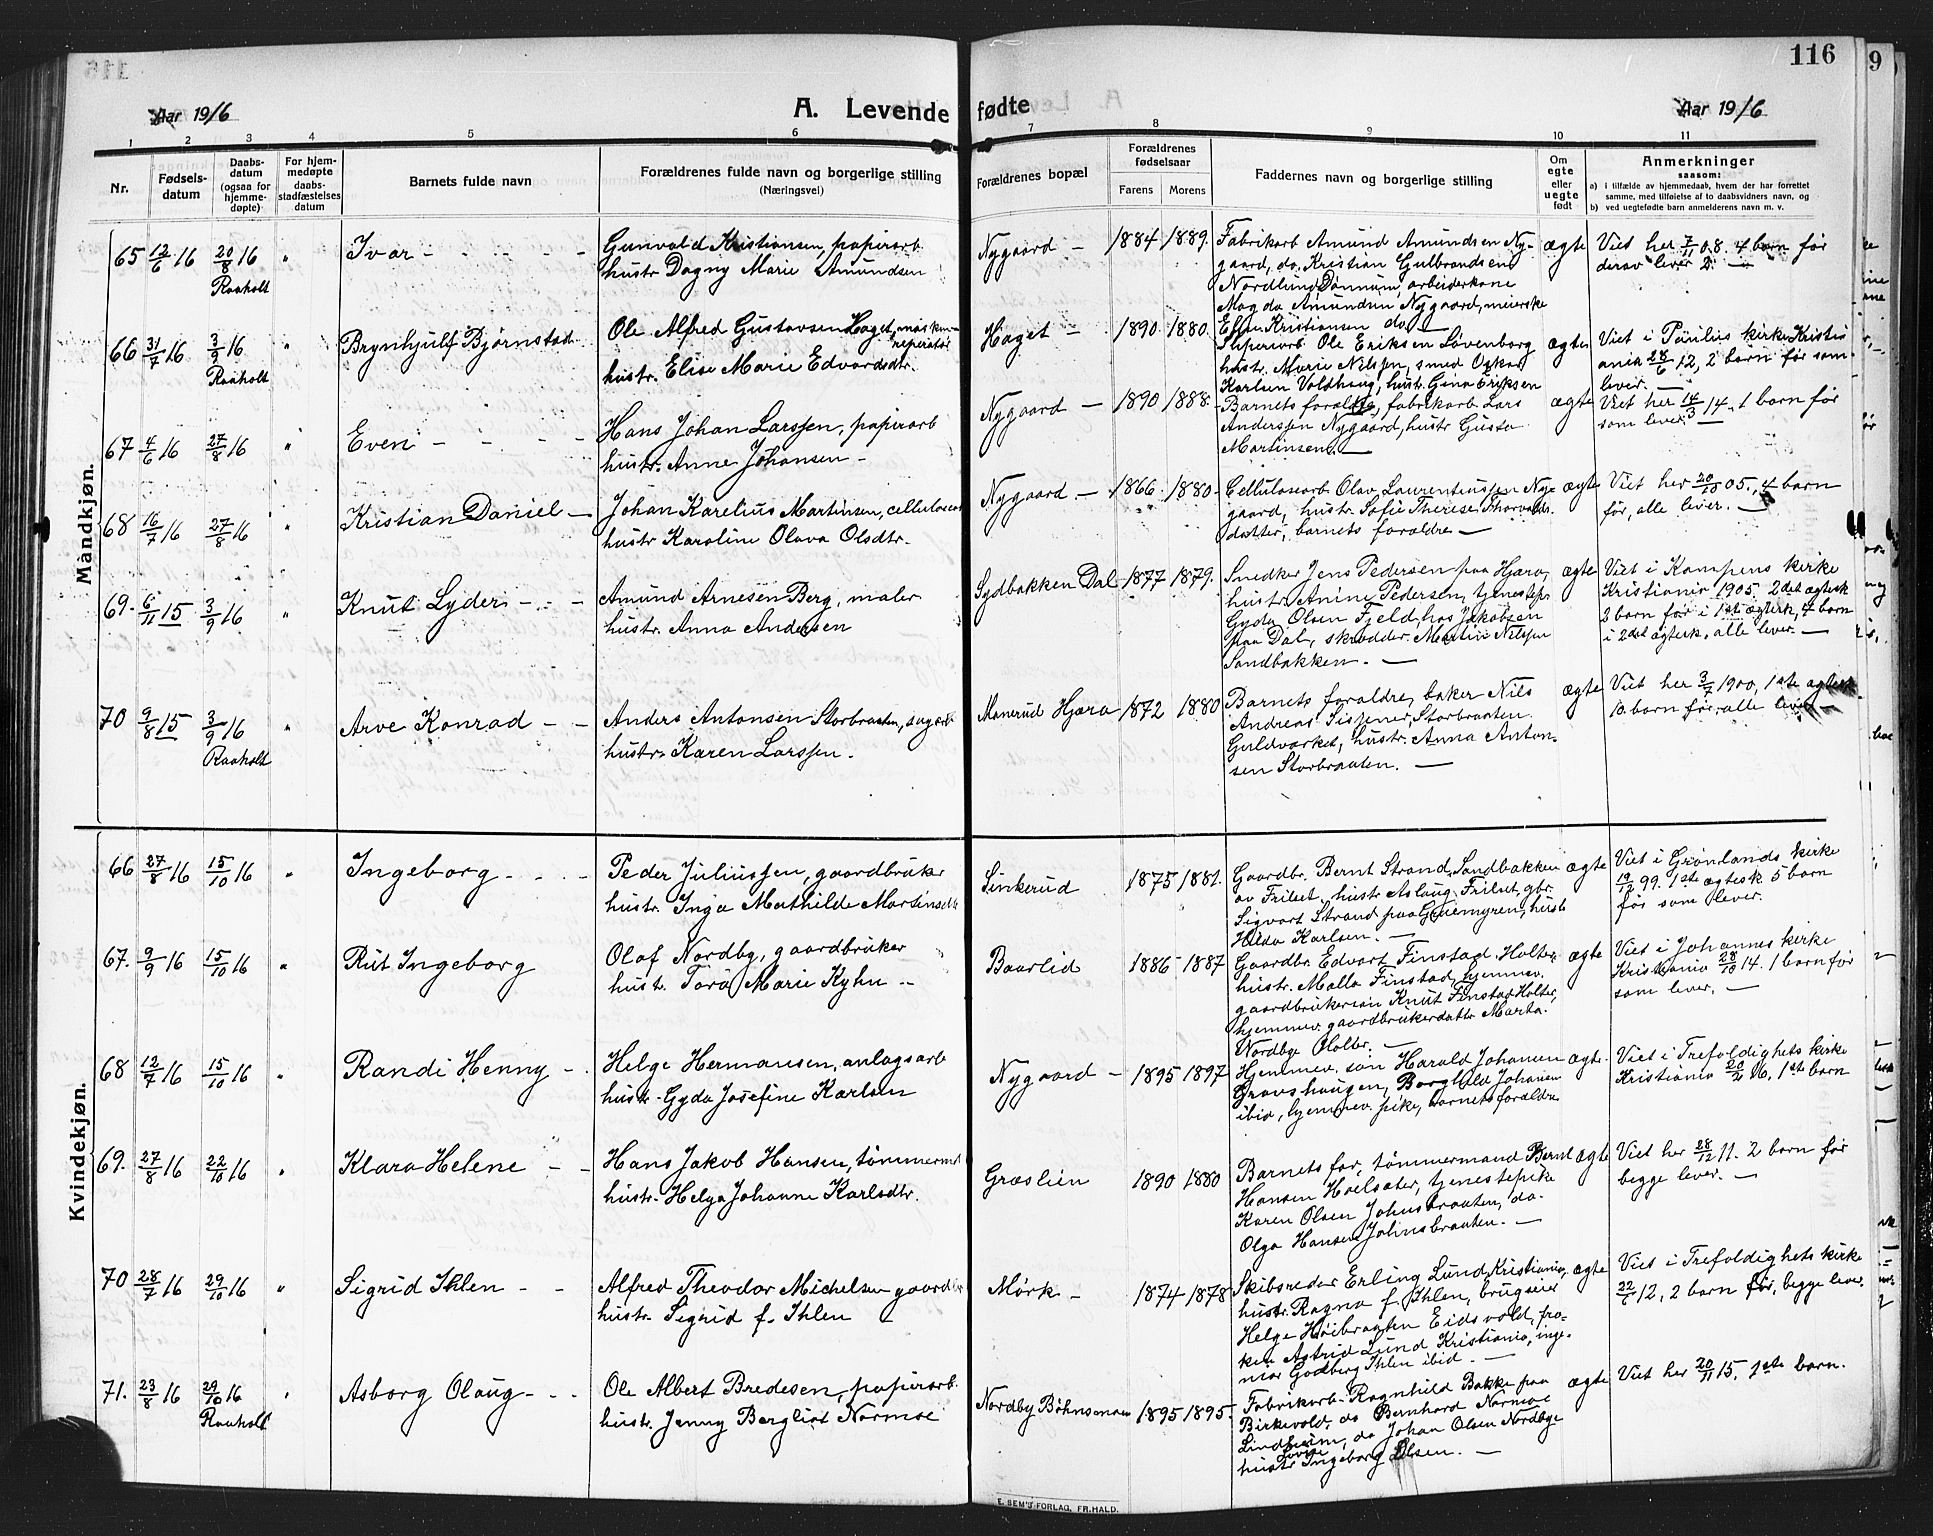 116
9
Aar 1916
A. Levende fødte
Aar 1916
1 2 3 4 5 6 7 8 9 10 11
Nr.
Fødsels-
datum
Daabs-
datum
(ogsaa for
hjemme-
døpte)
For hjem-
medøpte
daabs-
stadfæstelses
datum
Barnets fulde navn
Forældrenes fulde navn og borgerlige stilling
(Næringsvei)
Forældrenes bopæl
Forældrenes
fødselsaar
Farens Morens
Faddernes navn og borgerlige stilling
Om
egte
eller
uegte
født
Anmerkninger
saasom:
a) i tilfælde av hjemmedaab, hvem der har forrettet
samme, med tilføielse af to daabsvidners navn, og
b) ved uegtefødte barn anmelderens navn m. v.
Mandkjøn.
65 12/6 16 20/8 16 "
Raaholt
Ivar
Gunvald Kristiansen, papirarb.
hustr. Dagny Marie Amundsen
Nygaard
1884 1889
Fabrikarb Amund Amundsen Ny-
gaard, do. Kristian Gulbrandsen
Nordlund Dønnum, arbeiderkone
Magda Amundsen Nygaard, meierske
Kristiansen do
ægte
Viet her 7/11 08. 4 barn før
derav lever 2.
66 31/7 16 3/9 16
Raaholt
Brynhjulf Bjørnstad
Ole Alfred Gustavsen Haget, maskin-
reperatør
hustr. Elise Marie Edvardsdtr.
Haget
1890 1880
Ole Eriksen Løvenborg
hustr. Marie Nilssen, smed Oskar
Karlsen Voldhaug, hustr. Gina Eriksen
ægte
Viet i Paulus kirke Kristi
ania 28/6 12, 2 barn før som
lever.
67 4/6 16 27/8 16 "
Even
Hans Johan Larssen, papirarb
hustr. Anne Johansen
Nygaard
1890 1888
Barnets forældre, fabrikarb. Lars
Anderssen Nygaard, hustr Gusta
Martinsen.
ægte
Viet her 14/3 14. 1 barn før
som lever.
68 16/7 16 27/8 16 "
Kristian Daniel
Johan Karelius Martinsen, cellulosearb
hustr Karoline Olava Olsdtr.
Nygaard
1866 1880
Cellulosearb Olav Laurentiussen Ny-
gaard, hustr. Sofie Therese Thorvalds
datter, barnets forældre
ægte
Viet her 20/10 05., 4 barn
før, alle lever.
69. 6/11 15 3/9 16 "
Knut Lyder
Amund Arnesen Berg, maler
hustr. Anna Andersen
Sydbakken Dal
1877 1879.
Snedker Jens Pedersen paa Hjæra,
hustr. Anine Pedersen, tjenestepi
Gyda Olsen Fjeld hos Jakobsen
paa Dal, skrædder Martin Nilsen
Sandbakken.
ægte
Viet i Kampens kirke
Kristiania 1905. 2det ægtesk
2 barn før i 1ste ægtesk, 7 barn
i 2det ægtesk, alle lever.
70 9/8 15 3/9 16 "
Raaholt
Arve Konrad
Anders Antonsen Storbraaten, sagarb
hustr. Karen Larssen.
Monerud Hjæra
1872 1880
Barnets forældre, baker Nils
Andreas Storbraaten
Guldværket, hustr. Anna Anton-
sen Storbraaten.
ægte
Viet her 3/7 1900, 1ste ægtesk
10. barn før, alle lever
Kvindekjøn.
66 27/8 16 15/10 16 "
Ingeborg
Peder Juliussen, gaardbruker
hustr. Inga Mathilde Martinsdtr
Sinkerud
1875 1881.
Gaardbr. Bernt Strand, Sandbakken
av Frilset, hustr Aslaug Frilset, gbr.
Sigvart Strand paa Grinemyren, hust
Hilda Karlsen.
ægte
Viet i Grønlands kirke
19/12 99. 1ste ægtesk 5 barn
før som lever.
67. 9/9 16 15/10 16 "
Rut Ingeborg
Olaf Nordby, gaardbruker
hust. Tora Marie Kyhn
Baarlid
1886 1887
Gaardbr. Edvart Finstad Holter,
hustr. Malla Finstad, hjemmev.
gaardbrukersøn Knut Finstad Holter,
hjemmev. gaardbrukerdattr Marta
Nordbye Holter.
ægte
Viet i Johannes kirke
Kristiania 28/10 14. 1 barn før
som lever.
68 12/7 16 15/10 16 "
Randi Henny
Helge Hermansen, anlægsarb
hustr. Gyda Josefine Karlsen
Nygaard
1895 1897
Hjemmev. søn Harald Johansen
Gravshaugen, Borghild Johansen
ibid, hjemmev. pike, barnets forældre
ægte.
Viet i Trefoldighets kirke
Kristiania 20/2 16, 1ste barn
69. 27/8 16 22/10 16 "
Klara Helene
Hans Jakob Hansen, tømmerm
hustr. Helga Johanne Karlsdtr.
Græslien
1890 1880
Barnets far, tømmermand Bernt
Hansen Hoelsæter, tjenestepike
Karen Olsen Johnsbraaten, do.
Olga Hansen Johnsbraaten.
ægte
Viet her 28/12 11. 2 barn før
begge lever.
70 28/7 16 29/10 16 "
Sigrid Ihlen
Alfred Theodor Michelsen gaardbr
hustr. Sigrid f. Ihlen
Mørk
1874 1878
Skibsreder Erling Lund Kristiania,
hustr. Ragna f. Ihlen, brugseier
Helge Høibraaten Eidsvold, frø-
ken Astrid Lund Kristiania, inge-
niør Godberg Ihlen ibid.
ægte
Viet i Trefoldighets kirke
22/6 12, 2 barn før, begge lever.
71. 23/8 16 29/10 16 "
Raaholt
Asborg Olaug
Ole Albert Bredesen, papirarb.
hustr. Jenny Bergliot Normoe
Nordby Bøhnsmoen
1895 1895
Fabrikarb. Ragnhild Bakke paa
Birkevold, do Bernhard Normoe
Lindheim, do Johan Olsen Nordbye
hustr Ingeborg Lovise Olsen.
ægte
Viet her 20/11 15. 1ste barn.
E. SEM'S FORLAG, FR.HALD.